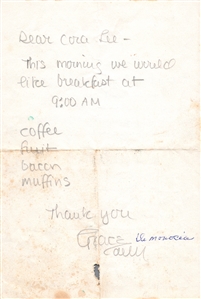 Dear Cora Lee -
This morning we would
like breakfast at
9:00 AM
coffee
fruit
bacon
muffins
Thank you
Grace de monaco